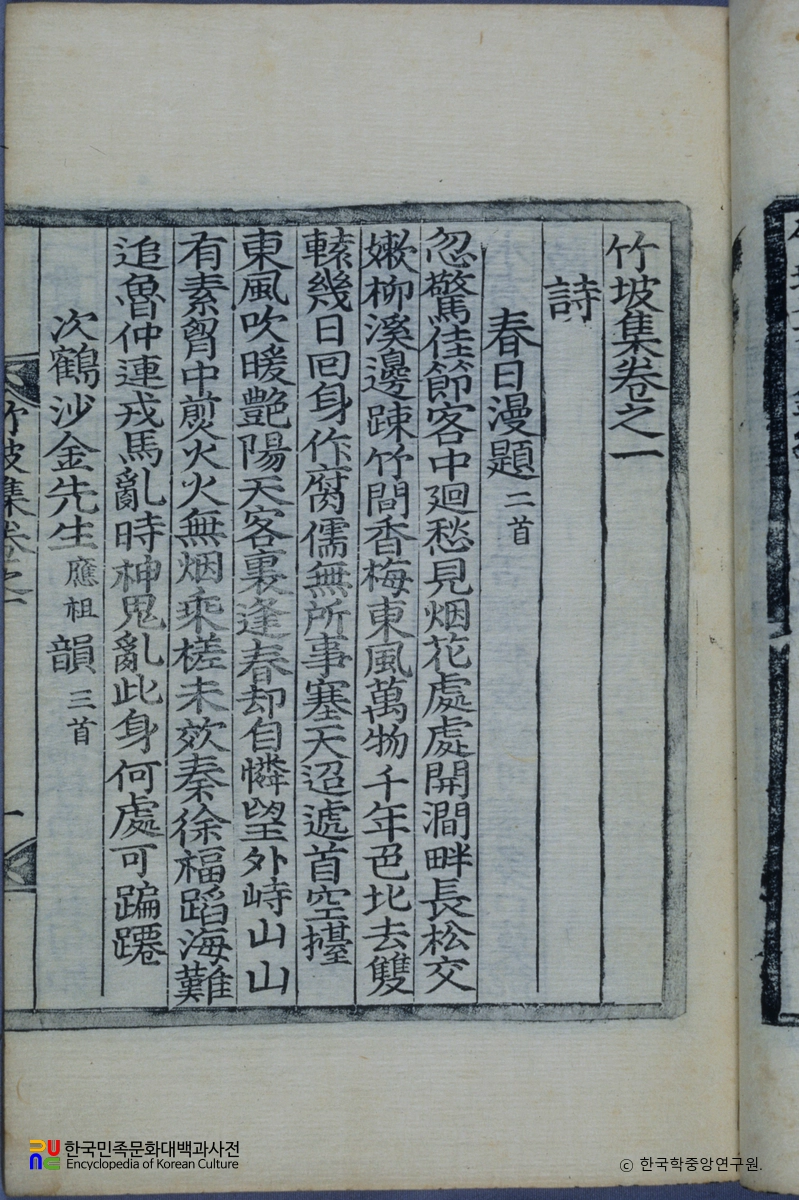 竹坡集卷之一
詩
春日漫題 二首
忽驚佳節客中廻愁見烟花處處開澗畔長松交
嫰柳溪邊踈竹間香梅東風萬物千年色北去雙
轅幾日回身作腐儒無所事塞天迢遞首空擡
東風吹暖艶陽天客裏逢春却自憐望外峙山山
有素胷中煎火火無烟乘槎未效秦徐福蹈海難
追魯仲連戎馬亂時神鬼亂此身何處可蹁躚
次鶴沙金先生 應祖 韻 三首
竹坡集卷之一
一
한국민족문화대백과사전
Encyclopedia of Korean Culture
© 한국학중앙연구원.